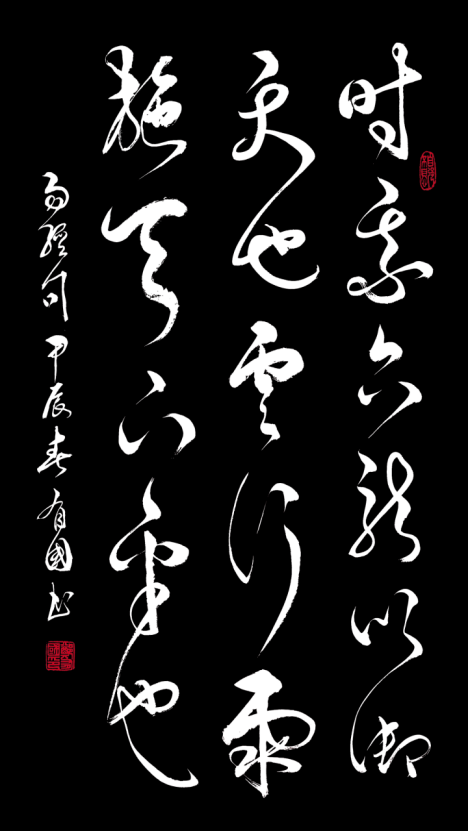 时乘六龍以御
天也雲行雨
施天下平也
易經句甲辰春有國书